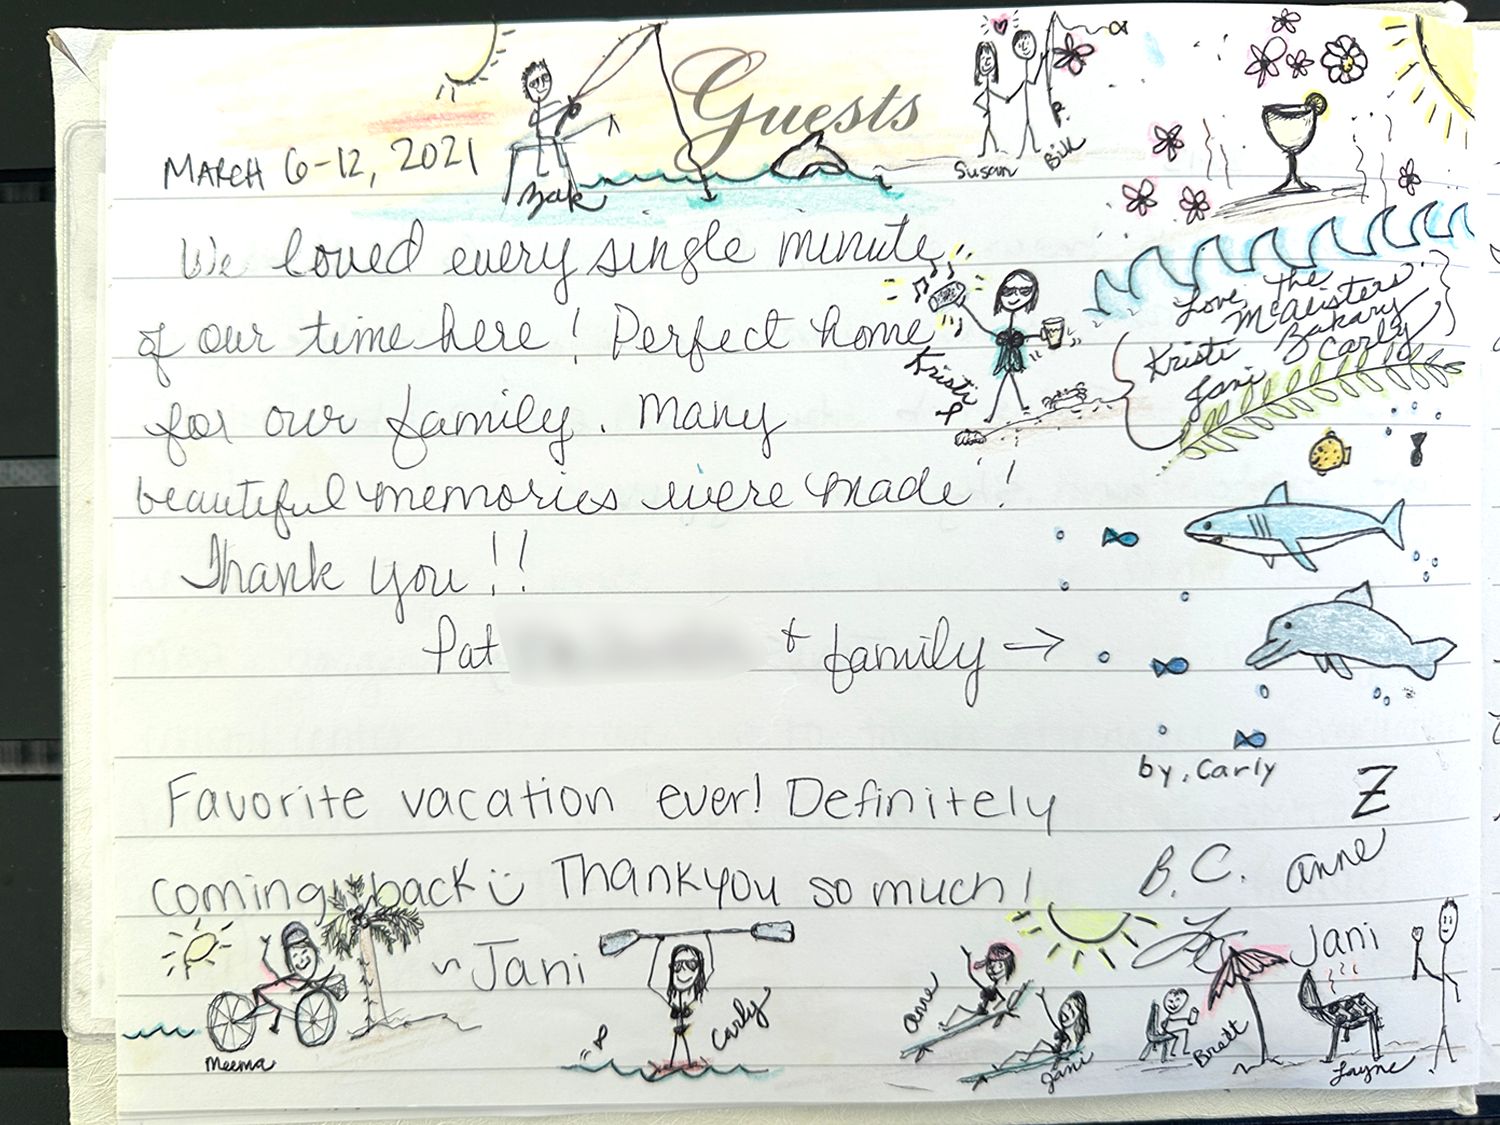 Guests
MARCH 6-12, 2021
Zak
Susan
Bill
We loved every single minute
of our time here! Perfect home
for our family. Many
beautiful memories were made!
Thank you!!
Pat
+ family →
Kristi
Love, the
McAlisters
Bakary
Kristi Carly
Jani
by, Carly
Favorite vacation ever! Definitely
coming back Thankyou so much!
~Jani
Z
B.C. anne
Jani
Meema
Carly
anne
Jani
Brett
Layne